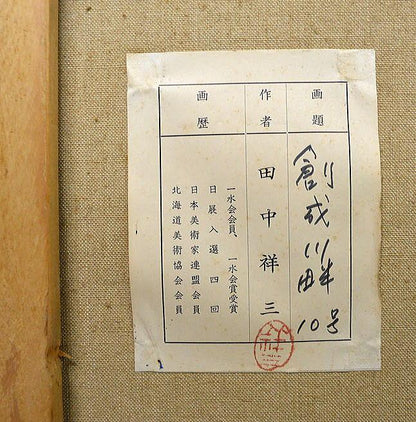 画題
創成川畔
10号
作者
田中祥三
画歴
一水会会員、一水会賞受賞
日展入選四回
日本美術家連盟会員
北海道美術協会会員